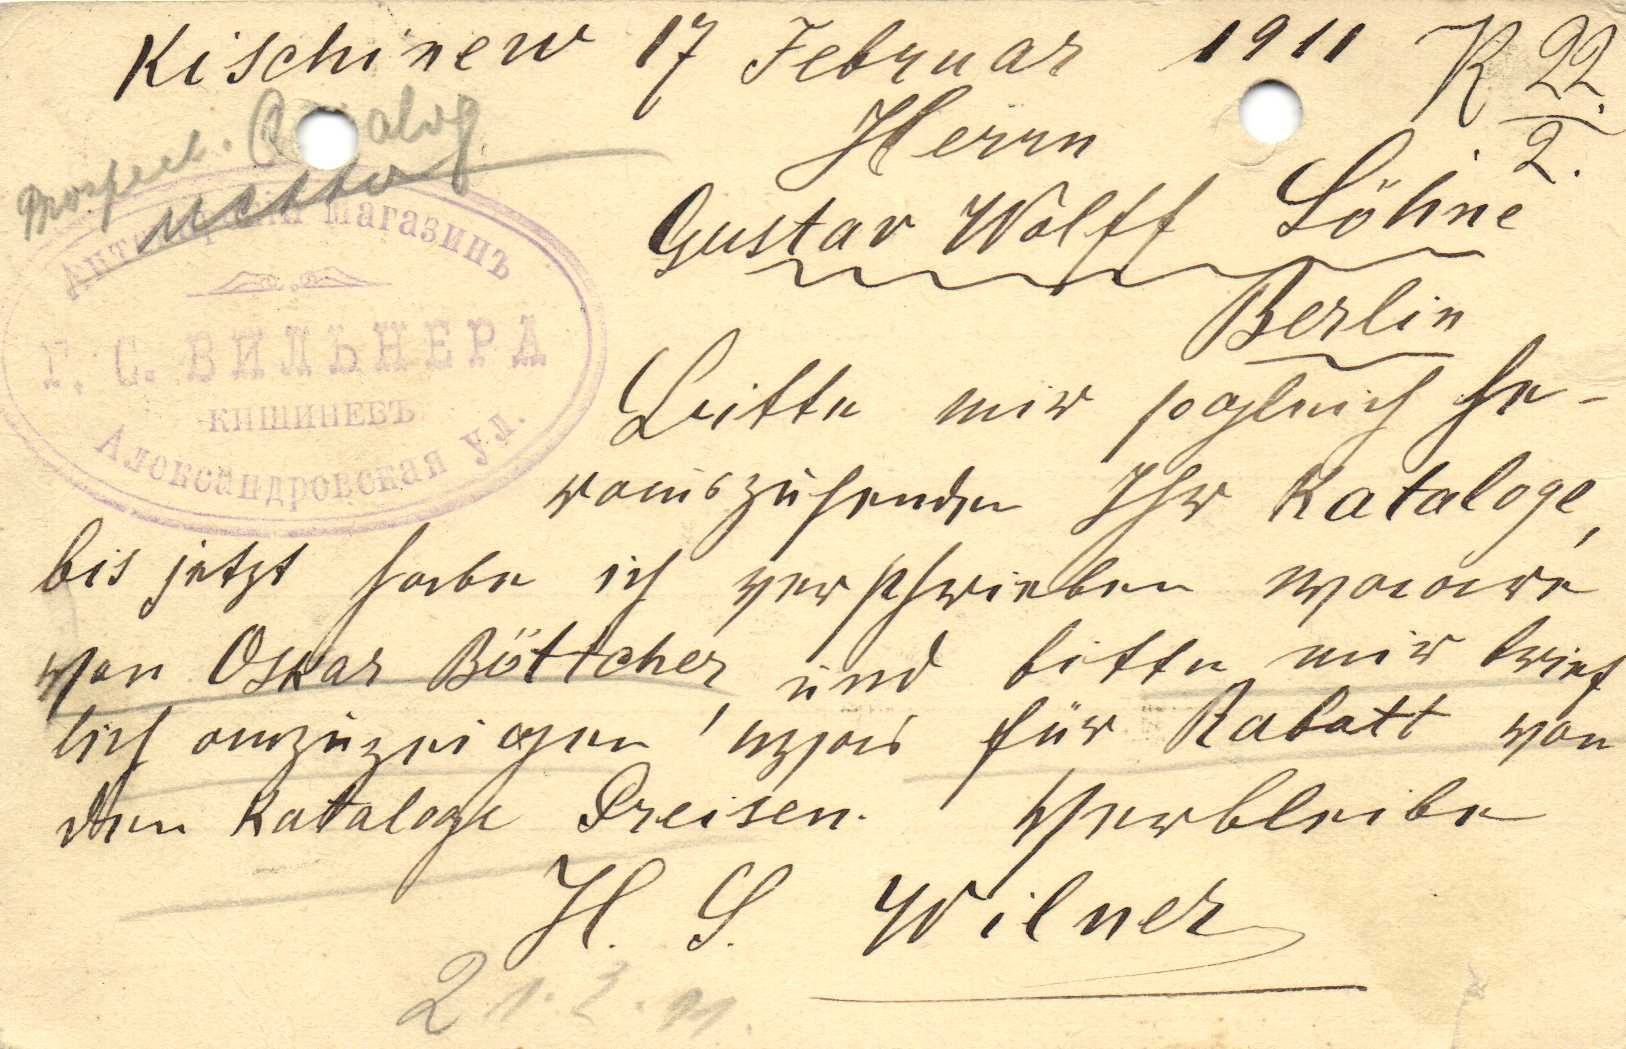 Kischinew 17 Februar 1911
K 22/2.
Prospect. Catalog
netto
Herrn
Gustav Wolff Söhne
Berlin
Аптекарскій магазинъ
Г. С. ВИЛЬНЕРА
КИШИНЕВЪ
Александровская ул.
Bitte mir sogleich he-
rauszusenden Ihr Kataloge,
bis jetzt habe ich verschrieben waare
von Oskar Böttcher, und bitte mir brief
lich anzuzeigen, was für Rabatt von
den Kataloge Preisen. Verbleibe
H. S. Wilner
21.2.11.